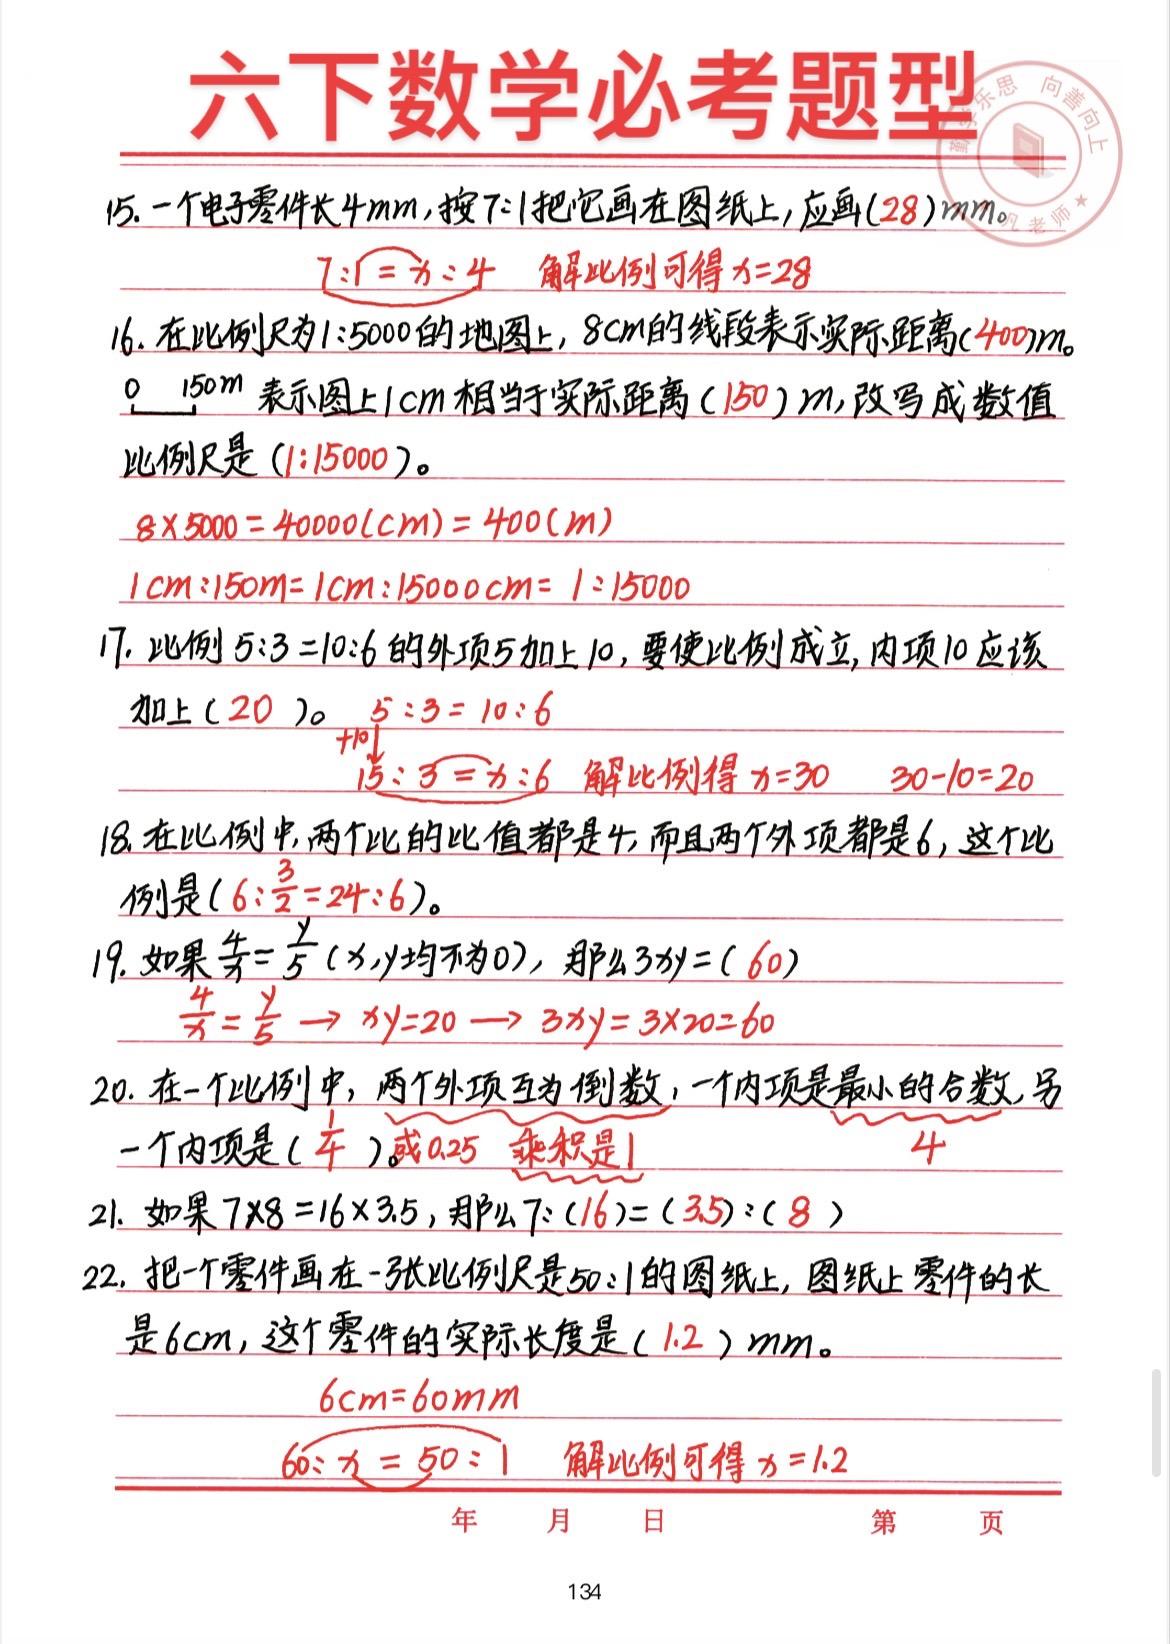 六下数学必考题型
勤学乐思 向善向上
凡老师★
15. 一个电子零件长4mm,按7:1把它画在图纸上,应画(28)mm。
7:1=x:4 解比例可得x=28
16. 在比例尺为1:5000的地图上,8cm的线段表示实际距离(400)m。
0 150m 表示图上1cm相当于实际距离(150)m,改写成数值
比例尺是(1:15000)。
8×5000=40000(cm)=400(m)
1cm:150m=1cm:15000cm=1:15000
17. 比例5:3=10:6的外项5加上10,要使比例成立,内项10应该
加上(20)。 5:3=10:6
+10↓
15:3=x:6 解比例得x=30 30-10=20
18. 在比例中,两个比的比值都是4,而且两个外项都是6,这个比
例是(6:3/2=24:6)。
19. 如果4/x=y/5(x,y均不为0),那么3xy=(60)
4/x=y/5→xy=20→3xy=3×20=60
20. 在一个比例中,两个外项互为倒数,一个内项是最小的合数,另
一个内项是(1/4)。或0.25 乘积是1 4
21. 如果7×8=16×3.5,那么7:(16)=(3.5):(8)
22. 把一个零件画在一张比例尺是50:1的图纸上,图纸上零件的长
是6cm,这个零件的实际长度是(1.2)mm。
6cm=60mm
60:x=50:1 解比例可得x=1.2
年 月 日 第 页
134